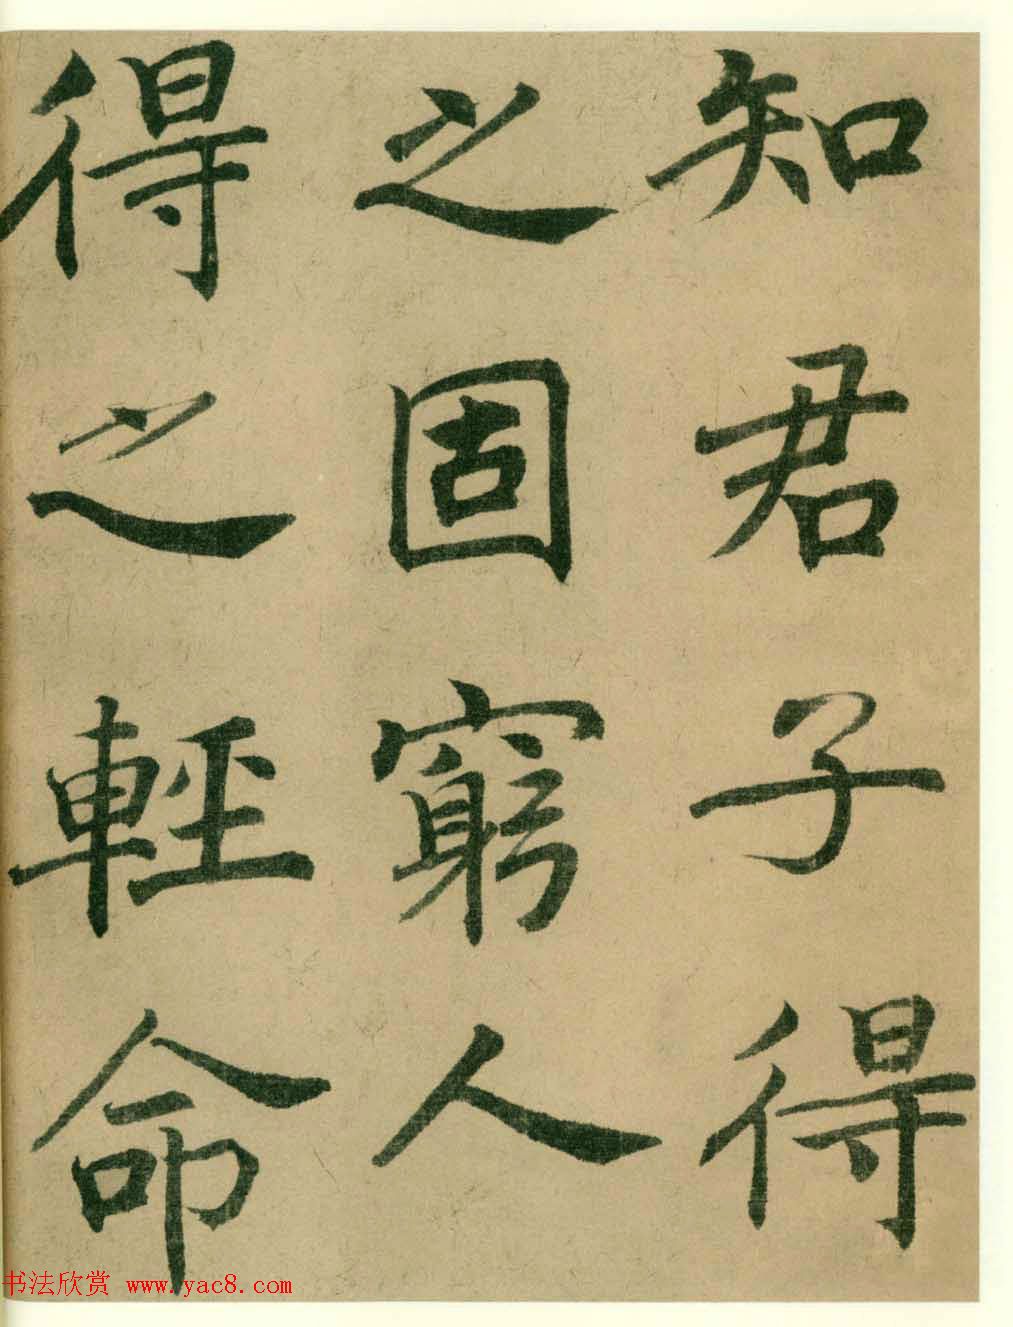 知君子得
之固窮人
得之輕命
书法欣赏 www.yac8.com